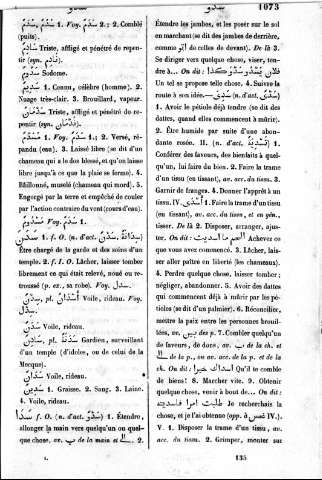 سدو
سدو
1073
سُدُمٌ, سَدَمٌ 1. Voy. سدم 2.; 2. Comblé
(puits).
سَادِمٌ Triste, affligé et pénétré de repen-
tir (syn. نَادِمٌ).
سَدُومُ Sodome.
سَدِيمٌ 1. Connu, célèbre (homme). 2.
Nuage très-clair. 3. Brouillard, vapeur.
سَدْمَانُ Triste, affligé et pénétré de re-
pentir (syn. نَدْمَانُ).
مُسَدَّمٌ 1. Voy. سدم 1.; 2. Versé, ré-
pandu (eau). 3. Laissé libre (se dit d'un
chameau qui a le dos blessé, et qu'on laisse
libre jusqu'à ce que la plaie se ferme). 4.
Bâillonné, muselé (chameau qui mord). 5.
Engorgé par la terre et empêché de couler
par l'action contraire du vent (cours d'eau).
مَسْدُومٌ Voy. سدم 1.
سدن f. O. (n. d'act. سَدْنٌ, سِدَانَةٌ) 1.
Être chargé de la garde et des soins d'un
temple. 2. f. I. O. Lâcher, laisser tomber
librement ce qui était relevé, noué ou re-
troussé (p. ex., sa robe). Voy. سدل.
سِدْنٌ, pl. أَسْدَانٌ Voile, rideau. Voy.
سدل.
سَدَنٌ Voile, rideau.
سَادِنٌ, pl. سَدَنَةٌ Gardien, surveillant
d'un temple (d'idoles, ou de celui de la
Mecque).
سَدَانٌ Voile, rideau.
سَدِينٌ 1. Graisse. 2. Sang. 3. Laine.
4. Voile, rideau.
سدا f. O. (n. d'act. سَدْوٌ) 1. Étendre,
allonger la main vers quelqu'un ou quel-
que chose, av. ب de la main et إلى. 2.
I.
Étendre les jambes, et les poser sur le sol
en marchant (se dit des jambes de derrière,
comme زدو de celles de devant). De là 3.
Se diriger vers quelque chose, viser, ten-
dre à... On dit : فلان يسدو سدو كذا
Un tel se propose telle chose. 4. Suivre la
route à son idée. — سدى (n. d'act. سدى)
1. Avoir le pétiole déjà tendre (se dit des
dattes, quand elles commencent à mûrir).
2. Être humide par suite d'une abon-
dante rosée. II. (n. d'act. تَسْدِيَةٌ) 1.
Conférer des faveurs, des bienfaits à quel-
qu'un, lui faire du bien. 2. Faire la trame
d'un tissu (en tissant), av. acc. du tissu. 3.
Garnir de franges. 4. Donner l'apprêt à un
tissu. IV. أسدى 1. Faire la trame d'un tissu
(en tissant), av. acc. du tissu, et en gén.,
tisser. De là 2. Disposer, arranger, ajus-
ter. On dit : اسد ما اسديت Achève ce
que vous avez commencé. 3. Lâcher, lais-
ser aller paître en liberté (les chameaux).
4. Perdre quelque chose, laisser tomber;
négliger, abandonner. 5. Avoir des dattes
qui commencent déjà à mûrir par les pé-
tioles (se dit d'un palmier). 6. Réconcilier,
mettre la paix entre les personnes brouil-
lées, av. بين des p. 7. Combler quelqu'un
de faveurs, de dons, av. ب de la ch. et
إلى de la p., ou av. acc. de la p. et de la
ch. On dit : اسداك خيرا Qu'il te comble
de biens! 8. Marcher vite. 9. Obtenir
quelque chose, venir à bout de... On dit :
طلبت امرا فاسديته Je recherchais la
chose, et je l'ai obtenue (opp. à غمس IV.).
V. 1. Disposer la trame d'un tissu, av.
acc. du tissu. 2. Grimper, monter sur
135